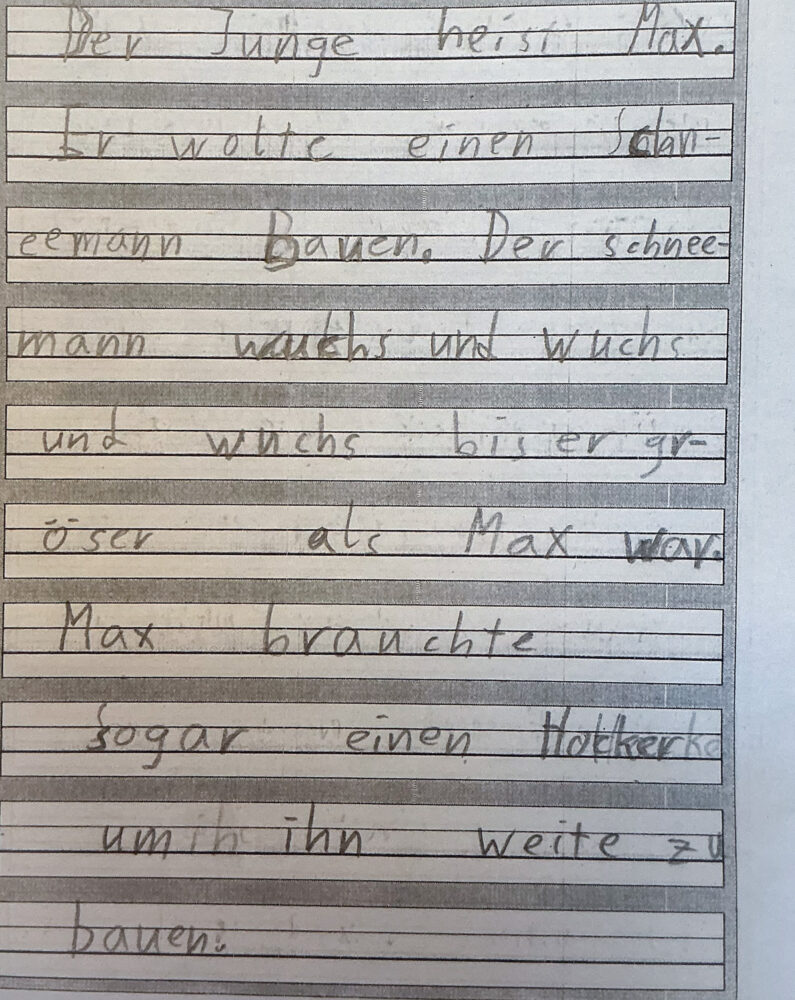 Der Junge heist Max.
Er wolte einen Schn-
eemann Bauen. Der schnee-
mann wuchs und wuchs
und wuchs bis er gr-
öser als Max war.
Max brauchte
sogar einen Hokker
um ihn weite zu
bauen.